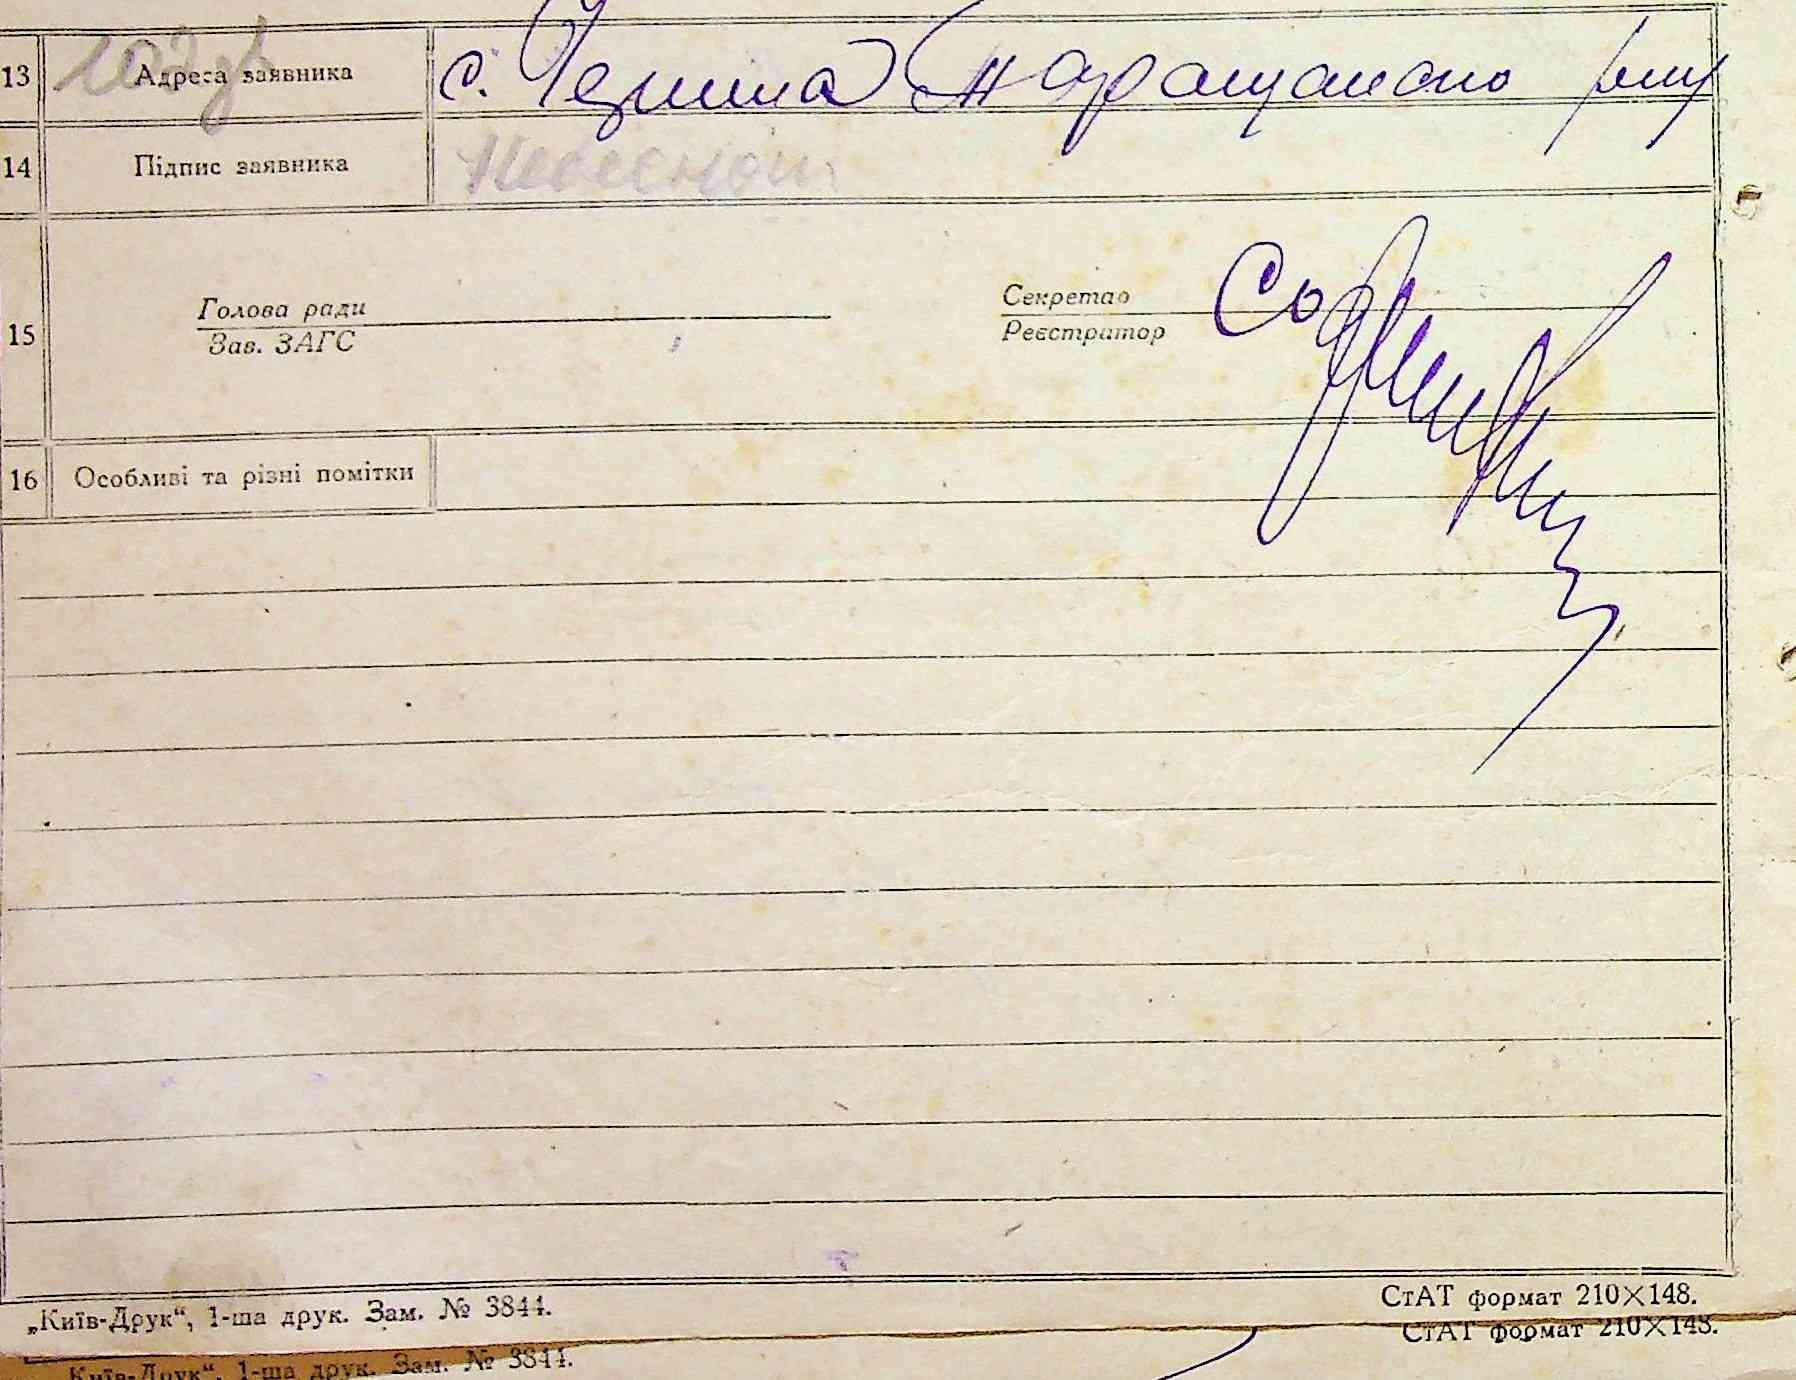 13 Адреса заявника с. Таращанського р-ну
14 Підпис заявника
15 Голова ради Секретар
Зав. ЗАГС Реєстратор
16 Особливі та різні помітки
„Київ-Друк“, 1-ша друк. Зам. № 3844. СтАТ формат 210×148.
„Київ-Друк“, 1-ша друк. Зам. № 3844. СтАТ формат 210×148.